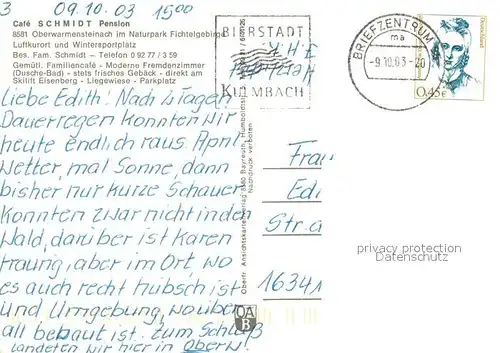 3 09.10.03 15oo
Café SCHMIDT Pension
8581 Oberwarmensteinach im Naturpark Fichtelgebirge
Luftkurort und Wintersportplatz
Bes. Fam. Schmidt – Telefon 0 92 77 / 3 59
Gemütl. Familiencafé - Moderne Fremdenzimmer
(Dusche-Bad) - stets frisches Gebäck - direkt am
Skilift Eisenberg - Liegewiese - Parkplatz
Liebe Edith! Nach 2 Tagen
Dauerregen konnten wir
heute endlich raus. April
Wetter, mal Sonne, dann
bisher nur kurze Schauer
konnten zwar nicht in den
Wald, darüber ist Karen
traurig, aber im Ort, wo
es auch recht hübsch ist
und Umgebung, wo über
all bebaut ist. Zum Schluß
landeten wir hier in Oberw.
BIERSTADT
KULMBACH
BRIEFZENTRUM
ma
-9.10.03-20
Deutschland
0,45€
Oberfr. Ansichtskartenverlag 8580 Bayreuth, Humboldtstr.
Nachdruck verboten
OA
B
Frau
Edi
Str. a
1634
privacy protection
Datenschutz